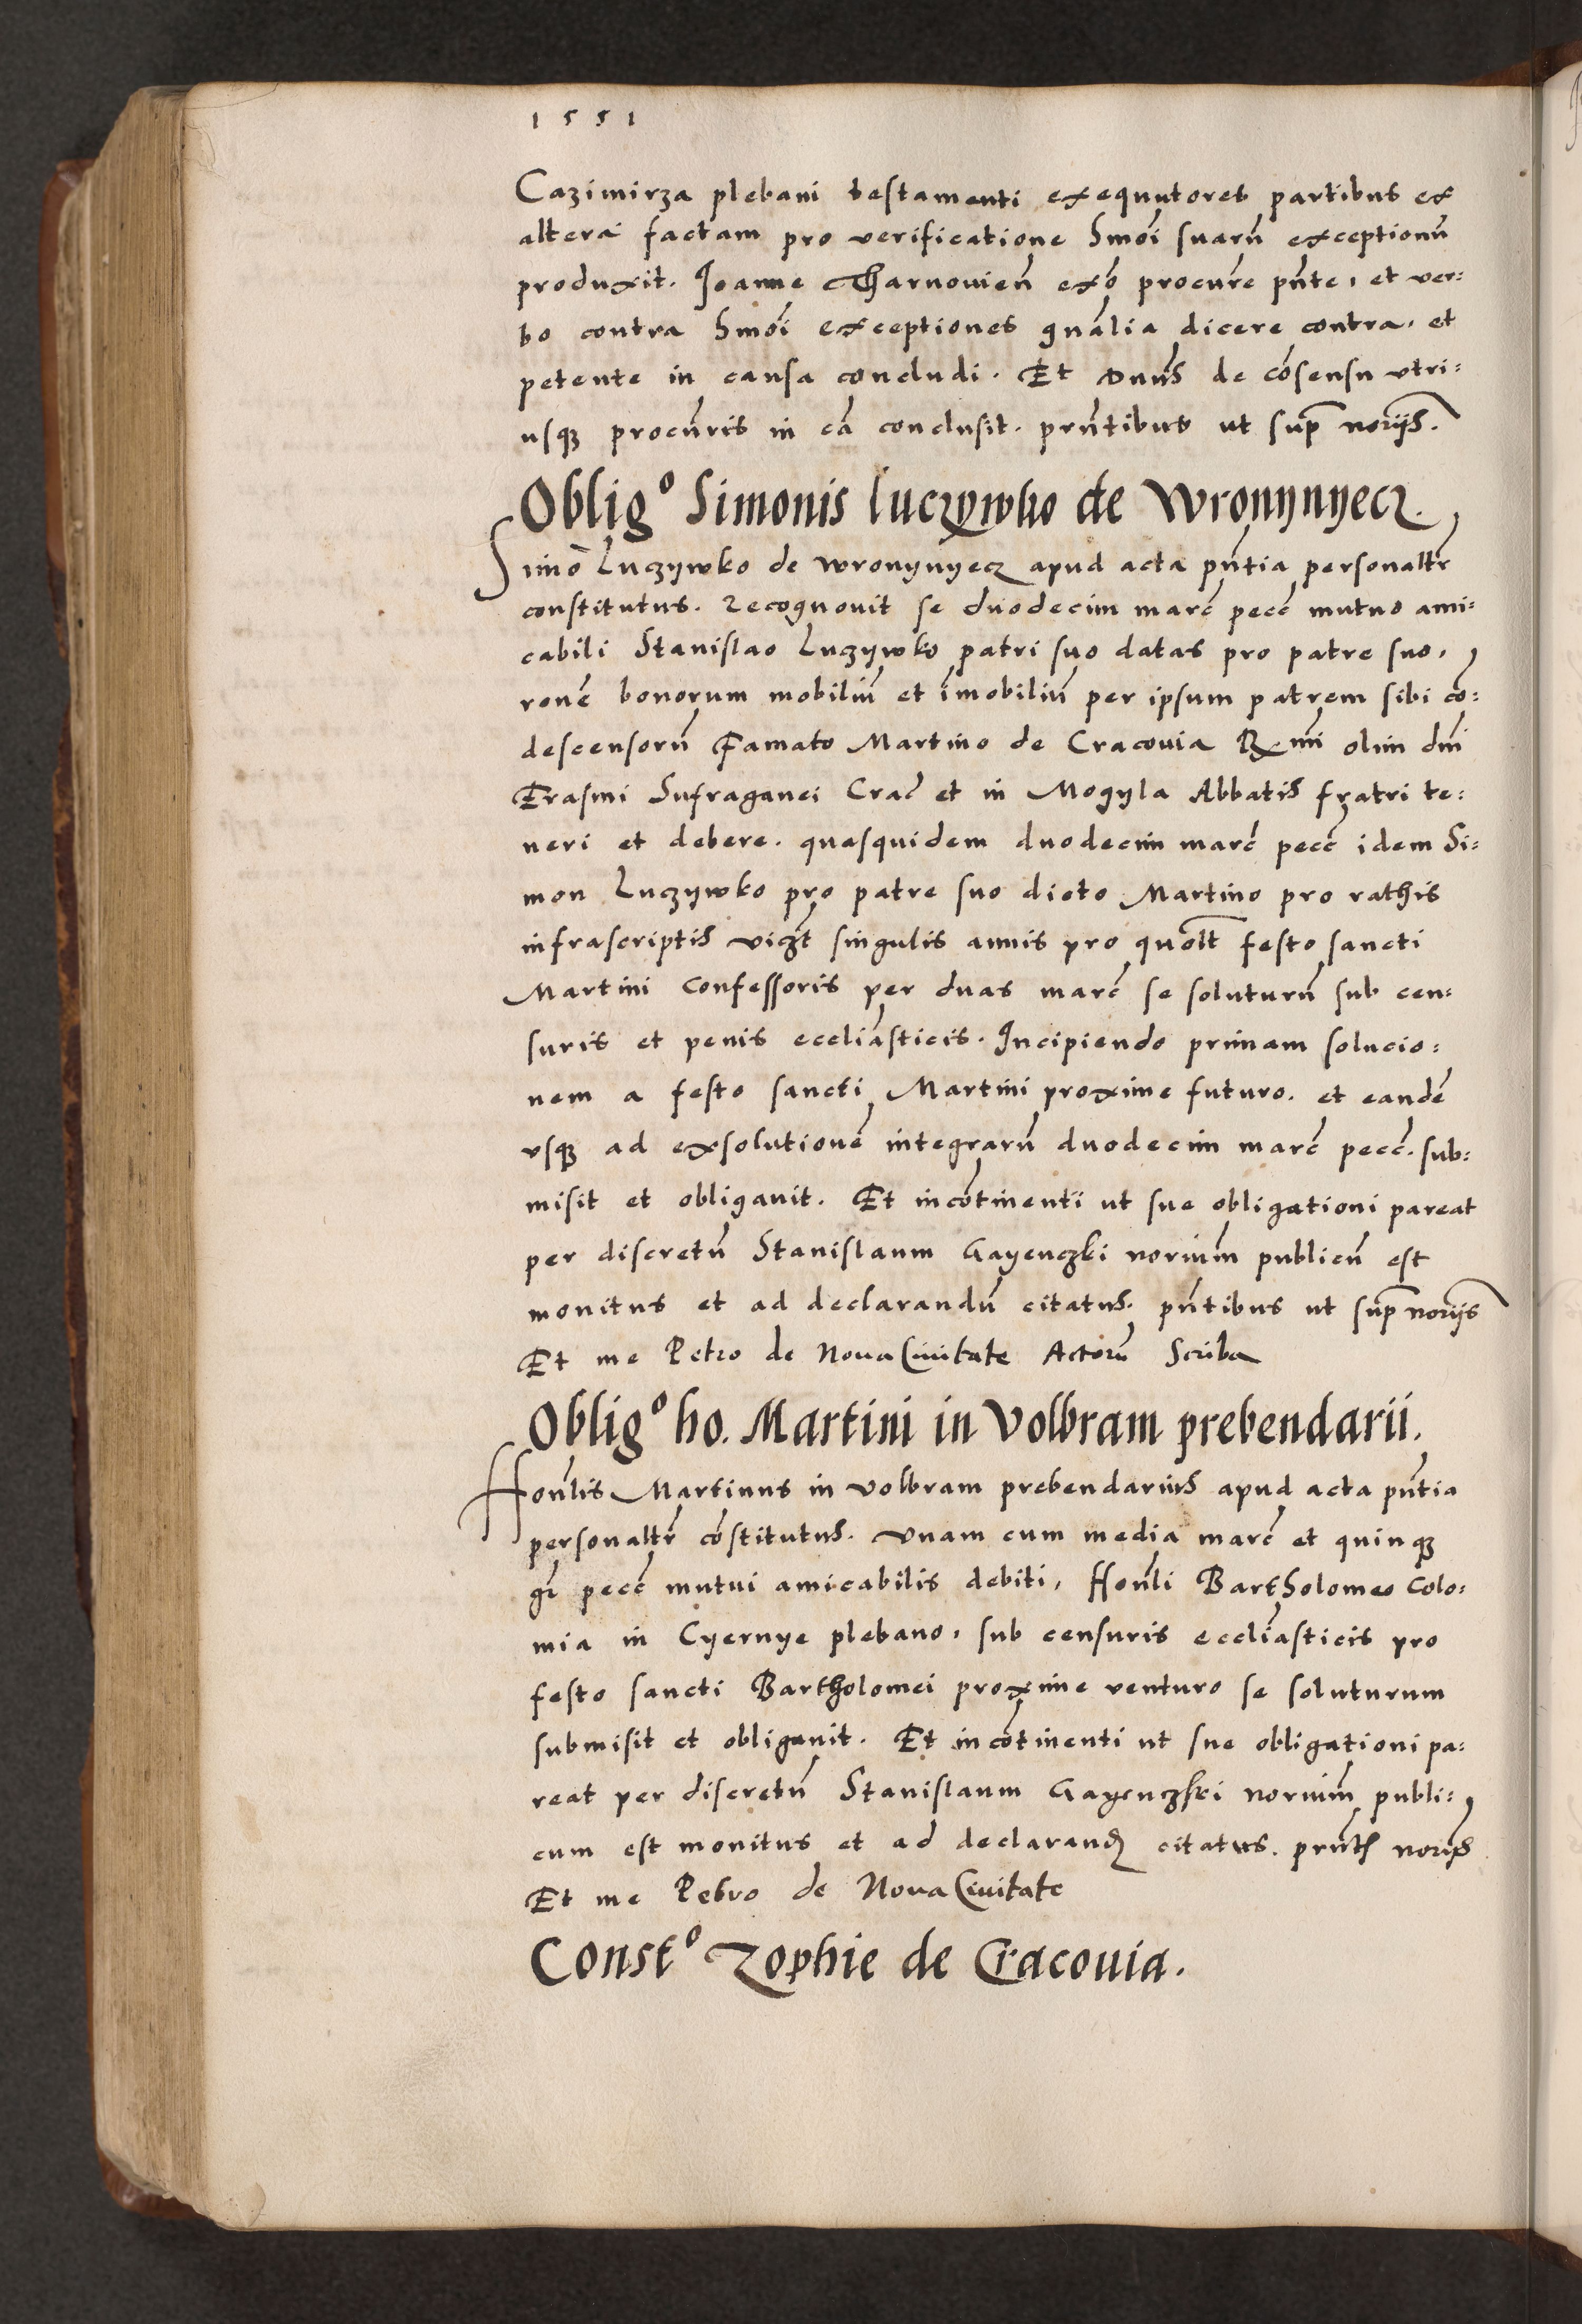 1551
Cazimirza plebani testamenti exequutores partibus ex
altera factam pro verificatione hmōi suarū exceptionū
produxit. Joanne Tharnouien̄ exō procurē pn̄te, et ver=
bo contra hmōi exceptiones gnālia dicere contra, et
petente in causa concludi. Et Dnūs de cōsensu vtri=
usqꝫ procur̄is in cā conclusit. prn̄tibus ut sup̄ noriis.
Obligº Simonis luczywko de Wronynyecz.
Simō Luczywko de wronynyecz apud acta pn̄tia personaltr̄
constitutus. Recognouit se duodecim marc̄ pecc̄ mutuo ami=
cabili Stanislao Luczywko patri suo datas pro patre suo,
ronē bonorum mobiliū et īmobiliū per ipsum patrem sibi cō=
descensorū Famato Martino de Cracouia Rx̄mi olim dn̄i
Erasmi Sufraganei Crac̄ et in Mogyla Abbatis fratri te=
neri et debere. quasquidem duodecim marc̄ pecc̄ idem Si=
mon Luczywko pro patre suo dicto Martino pro rathis
infrascriptis vicꝫt singulis annis pro quolt̄ festo sancti
Martini Confessoris per duas marc̄ se soluturū sub cen=
suris et penis eccliāsticis. Incipiendo primam solucio=
nem a festo sancti Martini proxime futuro. et eandē
vsqꝫ ad exsolutionē integrarū duodecim marc̄ pecc̄. sub=
misit et obligauit. Et incōtinenti ut sue obligationi pareat
per discretū Stanislaum Gayenczki noriūm publicū est
monitus et ad declarandū citatus. pn̄tibus ut sup̄ noriis
Et me Petro de Noua Ciuitate Actorū Scriba
Obligº ho. Martini in Volbram prebendarii.
Honl̄is Martinus in Volbram prebendarius apud acta pn̄tia
personaltr̄ cōstitutus. Vnam cum media marc̄ et quinqꝫ
gr̄ pecc̄ mutui amicabilis debiti, Honl̄i Bartholomeo Colo=
mia in Cyernye plebano, sub censuris eccliāsticis pro
festo sancti Bartholomei proxime venturo se soluturum
submisit et obligauit. Et incōtinenti ut sue obligationi pa=
reat per discretū Stanislaum Gayenczki noriūm publi=
cum est monitus et ad declarandꝫ citatus. prn̄t noriis
Et me Petro de Noua Ciuitate
Constº Zophie de Cracouia.